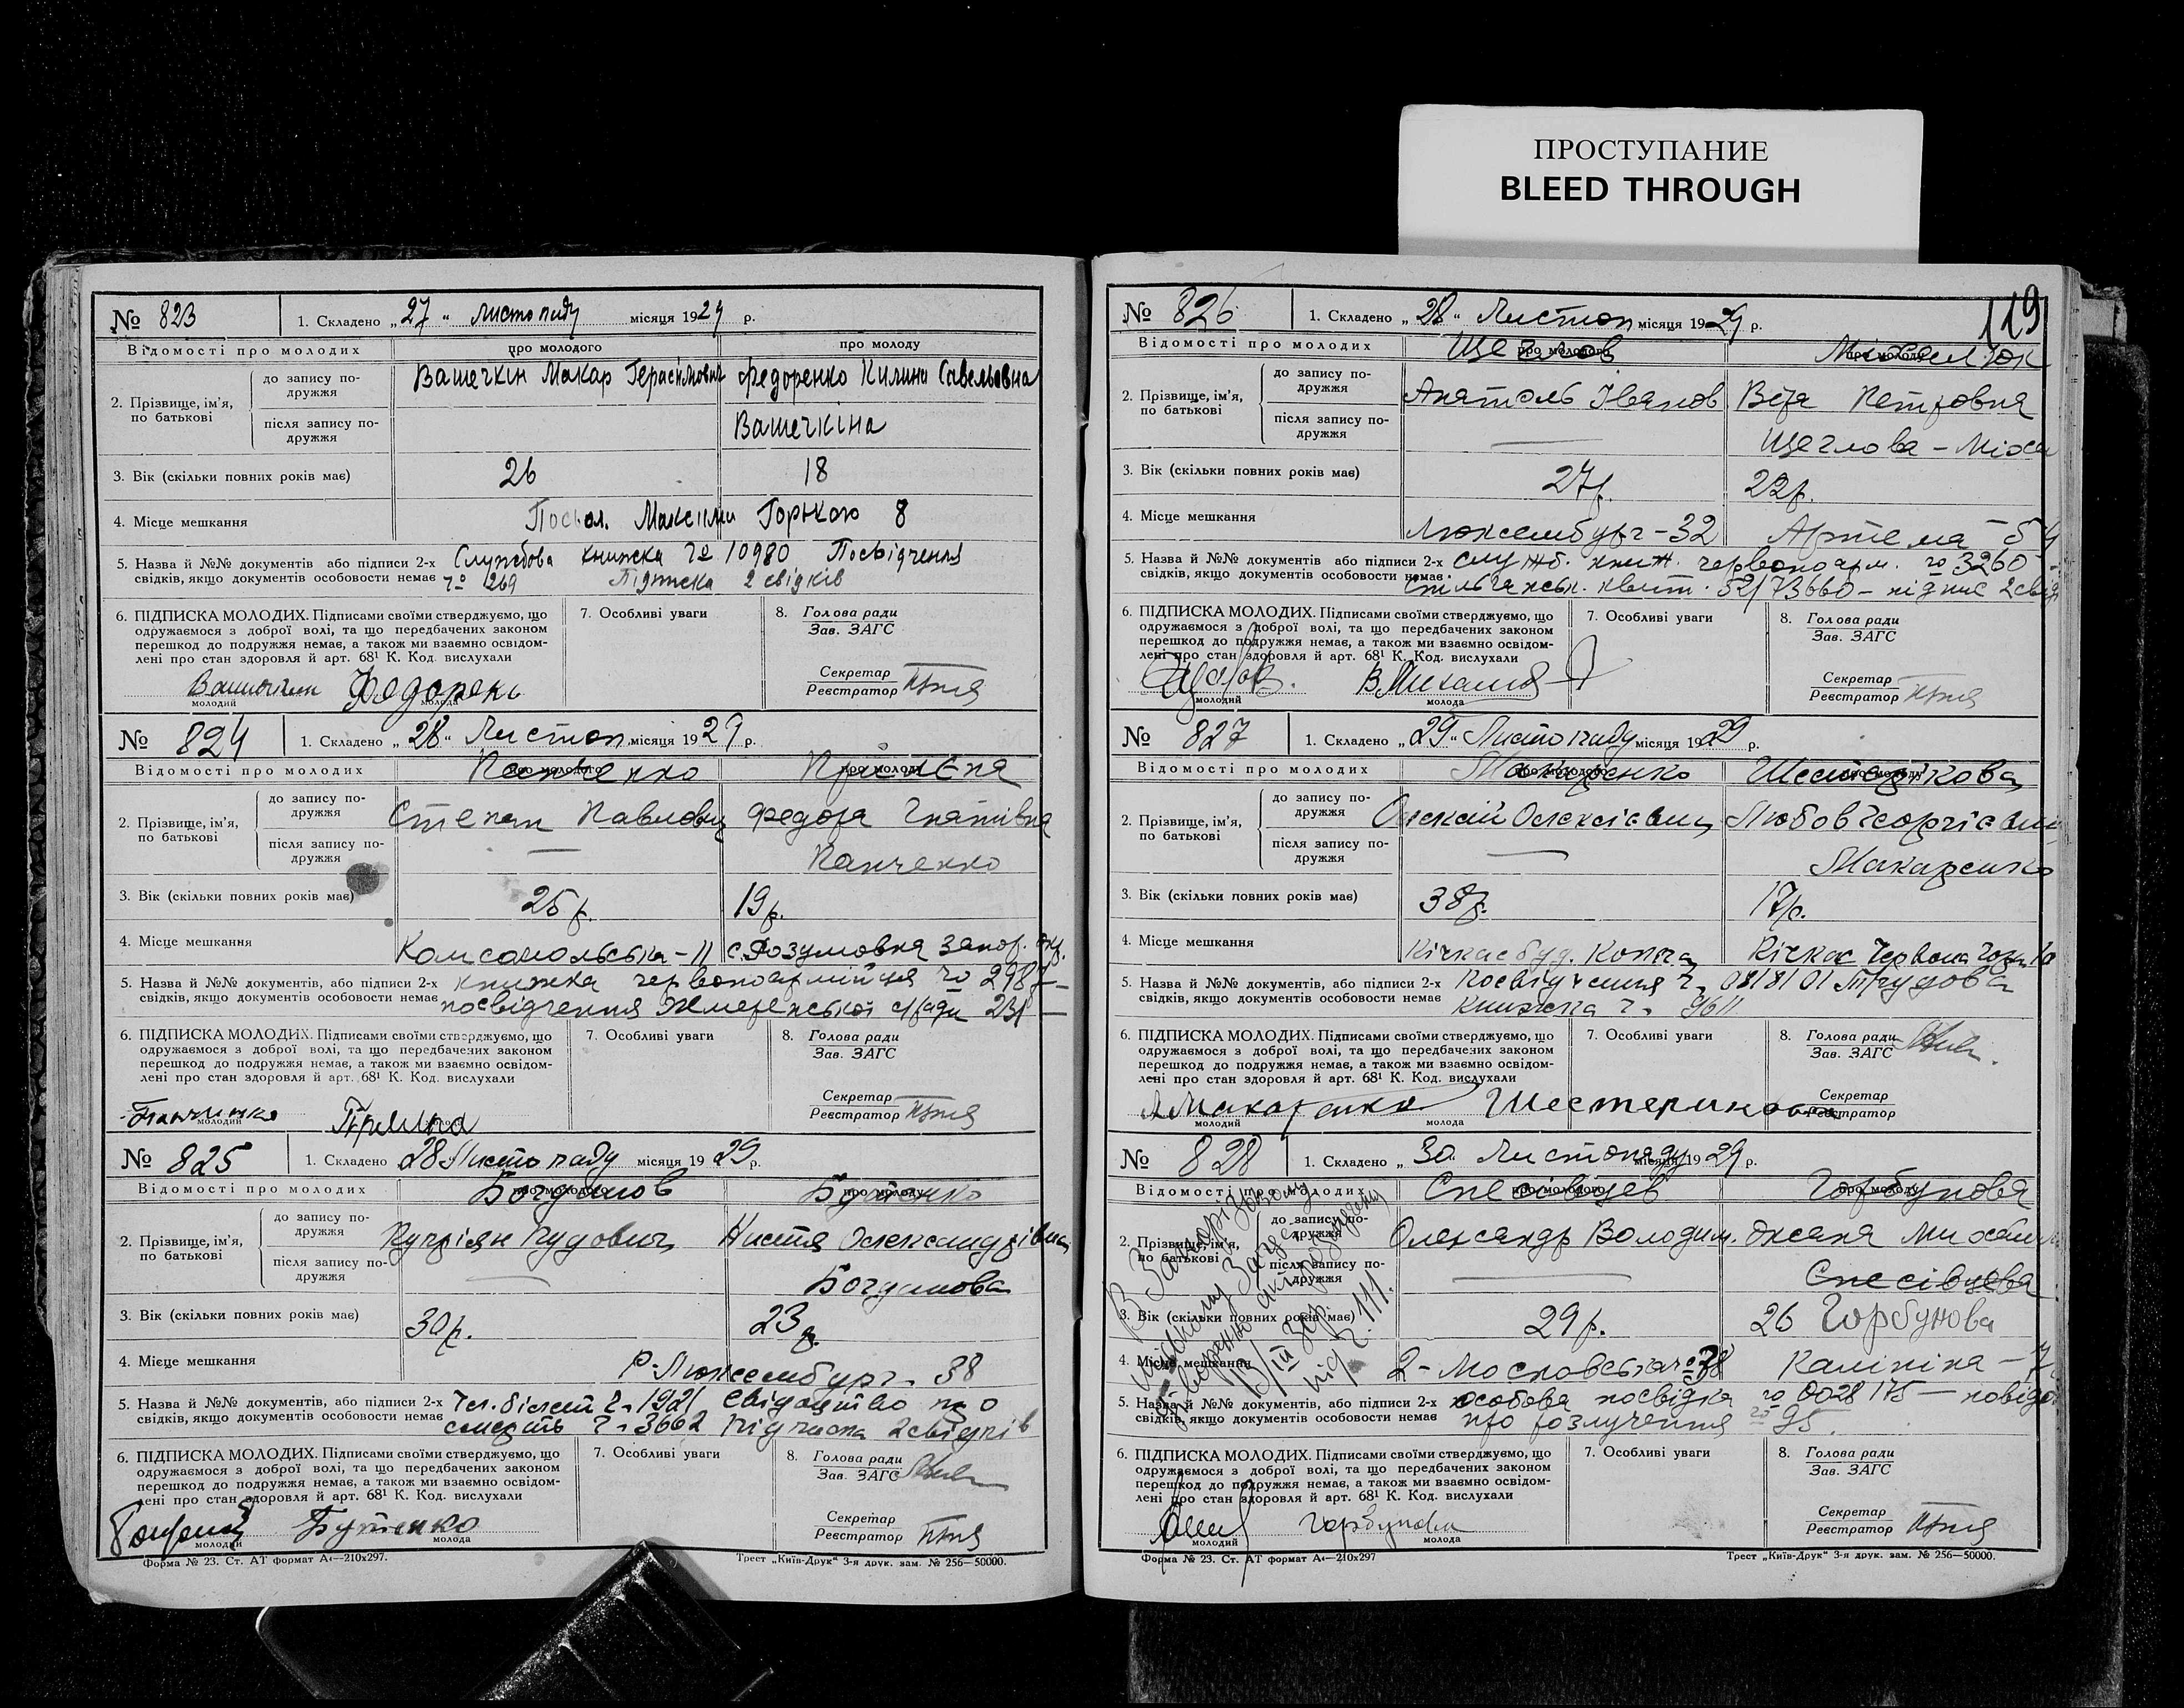 ПРОСТУПАНИЕ
BLEED THROUGH
№ 823 1. Складено „ 27 “ листопаду місяця 1929 р.
Відомості про молодих про молодого про молоду
2. Прізвище, ім'я, по батькові
до запису подружжя Вашечкін Макар Герасімович Федоренко Килина Савельовна
після запису подружжя Вашечкіна
3. Вік (скільки повних років має) 26 18
4. Місце мешкання Посьол. Максима Горького 8
5. Назва й №№ документів або підписи 2-х Службова книжка № 10980 Посвідчення
свідків, якщо документів особовости немає № 269 Підписка 2 свідків
6. ПІДПИСКА МОЛОДИХ. Підписами своїми стверджуємо, що
одружаємося з доброї волі, та що передбачених законом
перешкод до подружжя немає, а також ми взаємно освідом-
лені про стан здоровля й арт. 68¹ К. Код. вислухали
7. Особливі уваги
8. Голова ради
Зав. ЗАГС
Секретар
Реєстратор
молодий Федорен молода
№ 824 1. Складено „ 28 “ Листоп місяця 1929 р.
Відомості про молодих про молодого про молоду
Панченко
2. Прізвище, ім'я, по батькові
до запису подружжя Степан Павлович Федора Гнатівна
після запису подружжя — Панченко
3. Вік (скільки повних років має) 25 р. 19 р.
4. Місце мешкання Комсомольська – 11 с. Розумовка Запор. окр.
5. Назва й №№ документів, або підписи 2-х книжка червоноармійця № 2987 –
свідків, якщо документів особовости немає посвідчення с/ради 231 —
6. ПІДПИСКА МОЛОДИХ. Підписами своїми стверджуємо, що
одружаємося з доброї волі, та що передбачених законом
перешкод до подружжя немає, а також ми взаємно освідом-
лені про стан здоровля й арт. 68¹ К. Код. вислухали
7. Особливі уваги
8. Голова ради
Зав. ЗАГС
Секретар
Реєстратор
молодий молода
№ 825 1. Складено 28 Листопаду місяця 1929 р.
Відомості про молодих про молодого про молоду
Богданов Бутенко
2. Прізвище, ім'я, по батькові
до запису подружжя Купріян Настя Олександрівна
після запису подружжя — Богданова
3. Вік (скільки повних років має) 30 р. 23 р.
4. Місце мешкання Р-Люксембург. 38
5. Назва й №№ документів, або підписи 2-х Чл. білет ч. 1921 Свідоцтво про
свідків, якщо документів особовости немає смерть ч. 3662 Підписка 2 свідків
6. ПІДПИСКА МОЛОДИХ. Підписами своїми стверджуємо, що
одружаємося з доброї волі, та що передбачених законом
перешкод до подружжя немає, а також ми взаємно освідом-
лені про стан здоровля й арт. 68¹ К. Код. вислухали
7. Особливі уваги
8. Голова ради
Зав. ЗАГС
Секретар
Реєстратор
молодий Бутенко молода
Форма № 23. Ст. АТ формат А4—210х297. Трест „Київ-Друк“ 3-я друк. зам. № 256—50000.
119
№ 826 1. Складено „ 28 “ Листоп місяця 1929 р.
Відомості про молодих про молодого про молоду
Щеглов Міхаелюк
2. Прізвище, ім'я, по батькові
до запису подружжя Анатоль Іванов Віра Петровна
після запису подружжя — Щеглова –
3. Вік (скільки повних років має) 27 р. 22 р.
4. Місце мешкання Люксембург – 32 Артема –
5. Назва й №№ документів або підписи 2-х служб. книж. червоноарм. № 3260 –
свідків, якщо документів особовости немає квит. 52/73660 – підпис 2 свід
6. ПІДПИСКА МОЛОДИХ. Підписами своїми стверджуємо, що
одружаємося з доброї волі, та що передбачених законом
перешкод до подружжя немає, а також ми взаємно освідом-
лені про стан здоровля й арт. 68¹ К. Код. вислухали
7. Особливі уваги
8. Голова ради
Зав. ЗАГС
Секретар
Реєстратор
молодий молода
№ 827 1. Складено „ 29 “ Листопаду місяця 1929 р.
Відомості про молодих про молодого про молоду
Макаренко Шестерікова
2. Прізвище, ім'я, по батькові
до запису подружжя Олексій Олексієвич Любов Георгієвна
після запису подружжя — Макаренко
3. Вік (скільки повних років має) 38 р. 17 р.
4. Місце мешкання Кічкас буд. Кічкас Червона
5. Назва й №№ документів, або підписи 2-х посвідчення ч. 08/8/01 Трудова
свідків, якщо документів особовости немає книжка ч. 9611
6. ПІДПИСКА МОЛОДИХ. Підписами своїми стверджуємо, що
одружаємося з доброї волі, та що передбачених законом
перешкод до подружжя немає, а також ми взаємно освідом-
лені про стан здоровля й арт. 68¹ К. Код. вислухали
7. Особливі уваги
8. Голова ради
Зав. ЗАГС
Секретар
Реєстратор
Макаренко молодий молода
№ 828 1. Складено „ 30 Листопаду місяця 1929 р.
Відомості про молодих про молодого про молоду
Спесівцев Горбунова
2. Прізвище, ім'я, по батькові
до запису подружжя Олександр Володим. Оксана
після запису подружжя — Спесівцева
3. Вік (скільки повних років має) 29 р. 26 Горбунова
4. Місце мешкання 2 – Московська № 78 Калініна – 7
5. Назва й №№ документів, або підписи 2-х особова посвідка № 0028175 –
свідків, якщо документів особовости немає про розлучення № 95.
В Запорізькому
міському Загсі
розводу
13/III 30р.
під ч. 111.
6. ПІДПИСКА МОЛОДИХ. Підписами своїми стверджуємо, що
одружаємося з доброї волі, та що передбачених законом
перешкод до подружжя немає, а також ми взаємно освідом-
лені про стан здоровля й арт. 68¹ К. Код. вислухали
7. Особливі уваги
8. Голова ради
Зав. ЗАГС
Секретар
Реєстратор
молодий Горбунова молода
Форма № 23. Ст. АТ формат А4—210х297 Трест „Київ-Друк“ 3-я друк. зам. № 256—50000.